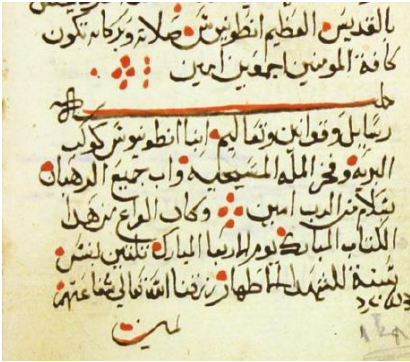 بالقديس العظيم انطونيوس صلاته وبركاته تكون
كافة المومنين اجمعين امين
رسايل وقوانين وتعاليم انبا انطونيوس كوكب
البرية وفخر الملة المسيحية واب جميع الرهبان
بسلام من الرب امين وكان الفراغ من هذا
الكتاب المبارك يوم الاربعا المبارك
سنة للشهدا الاطهار رزقنا الله تعالى شفاعتهم
امين